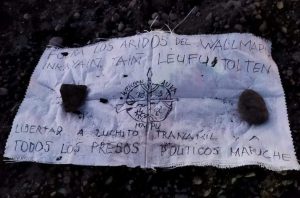 FUERA LOS ARIDOS DEL WALLMAPU
LEUFU TOLTEN
LIBERTAD A LUCHITO TRANAMIL Y
TODOS LOS PRESOS POLITICOS MAPUCHE